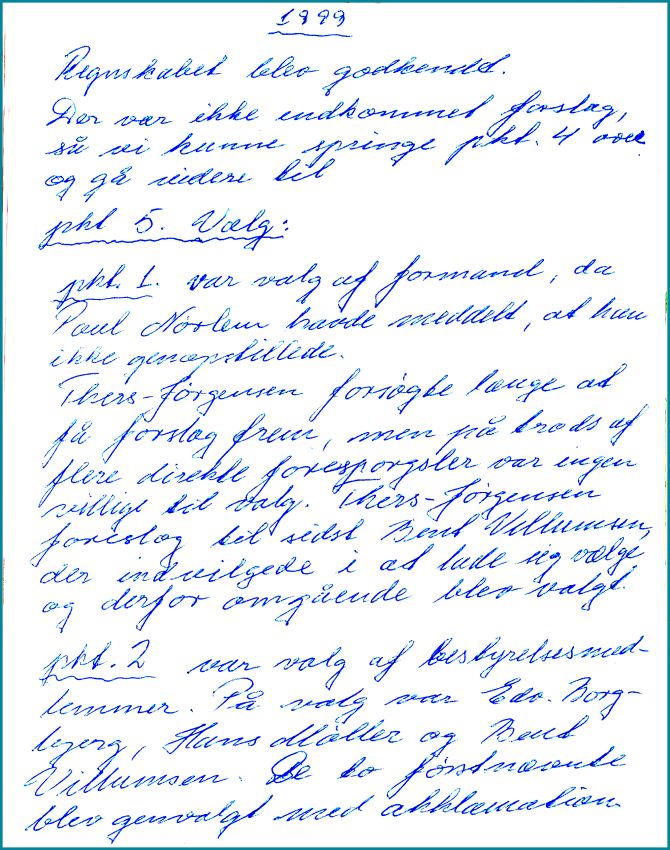 1999
Regnskabet blev godkendt.
Der var ikke indkommet forslag,
så vi kunne springe pkt. 4 over
og gå videre til
pkt 5. Valg:
pkt. 1. var valg af formand, da
Poul Nørlem havde meddelt, at han
ikke genopstillede.
Thers-Jørgensen forsøgte længe at
få forslag frem, men på trods af
flere direkte forespørgsler var ingen
villige til valg. Thers-Jørgensen
foreslog til sidst Bent Villumsen,
der indvilgede i at lade sig vælge
og derfor omgående blev valgt.
pkt. 2 var valg af bestyrelsesmed-
lemmer. På valg var Edv. Borg-
bjerg, Hans Møller og Bent
Villumsen. De to førstnævnte
blev genvalgt med akklamation